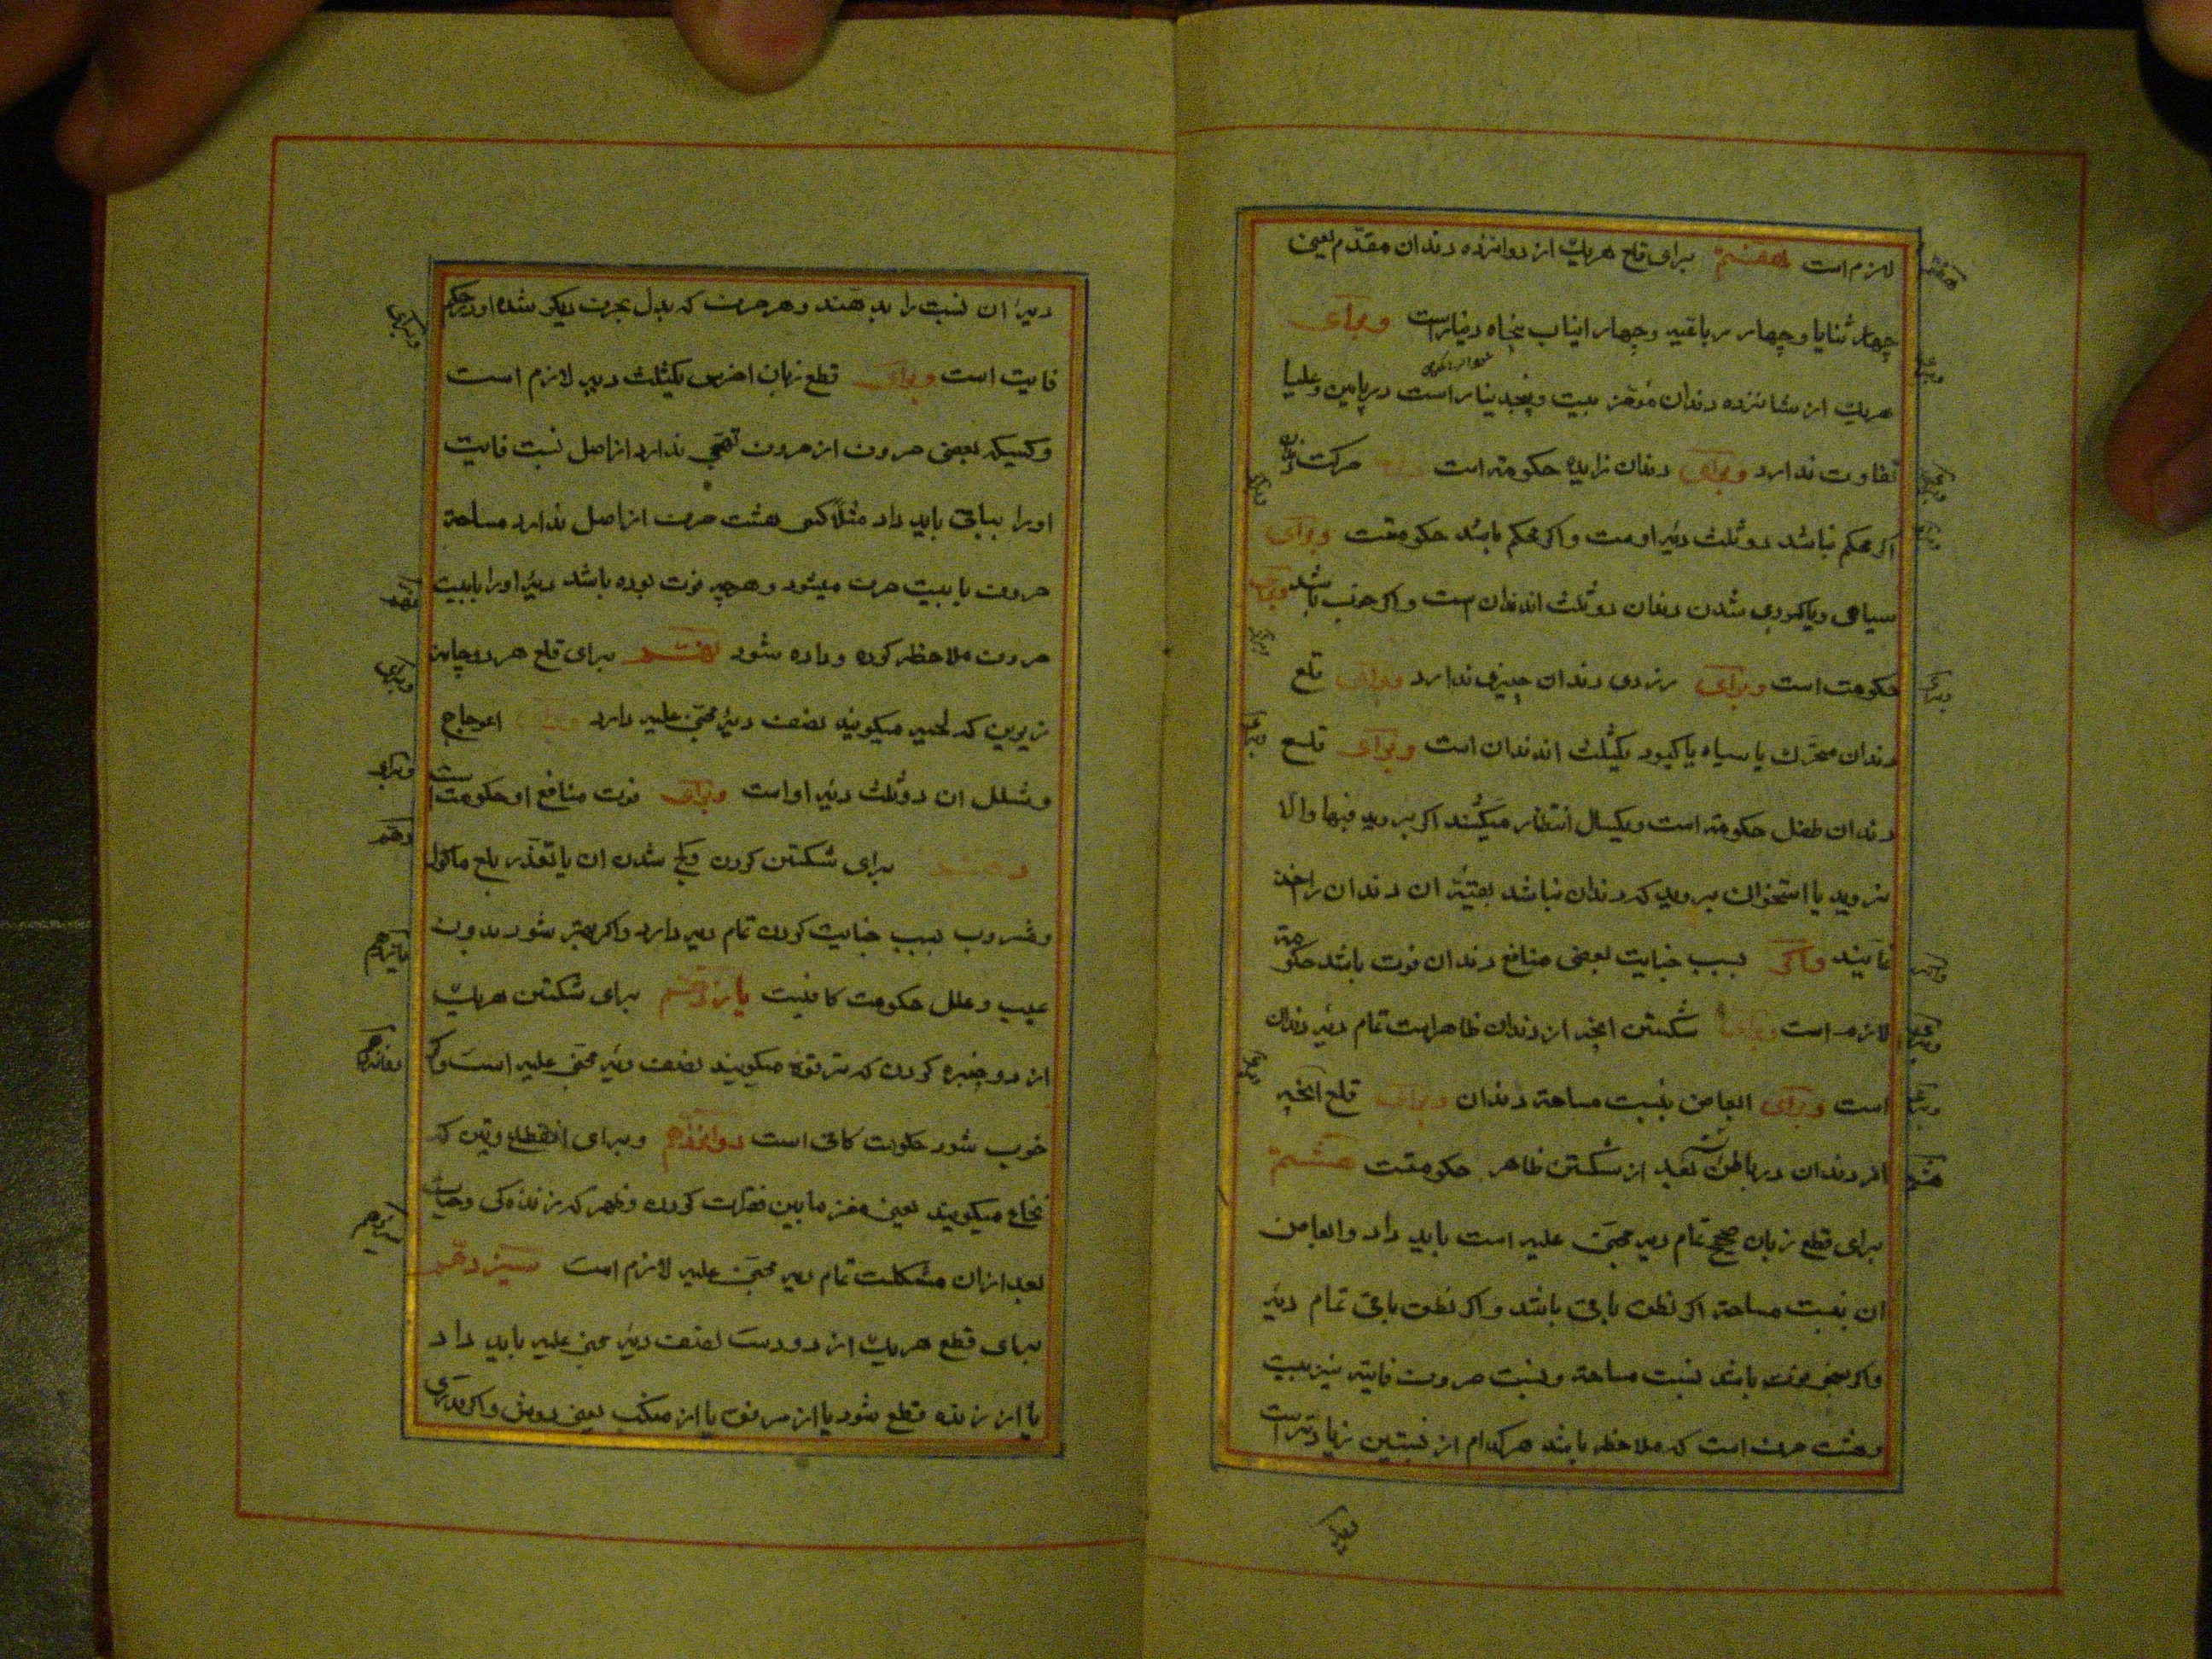 لازم است هفتم برای قلع هریك از دوازده دندان مقدم یعنی
چهار ثنایا و چهار رباعیه و چهار انیاب پنجاه دینار است و برای
هریك از شانزده دندان مؤخر بیست و پنجدینار است در پایین و علیا
تفاوت ندارد و برای دندان زایده حکومة است حرکت دندان
اگر محکم نباشد دو ثلث دیه اوست و اگر محکم باشد حکومتست و برای
سیاهی و یا کبودی شدن دندان دو ثلث اندندان است و اگر خوب باشد و برای
حکومت است و برای زردی دندان چیزی ندارد و برای قلع
دندان متحرك یا سیاه یا کبود یکثلث اندندان است و برای قلع
دندان طفل حکومة است و یکسال انتظار میکشند اگر بروید فبها والا
نروید یا استخوان بروید که دندان نباشد بقیه ان دندان را اخذ
نمایند و اگر بسبب جنایت بعضی منافع دندان فوت باشد حکومة
لازم است و برای شکستن انچه از دندان ظاهر است تمام دیه دندان
است و برای ابعاض بنسبت مساحة دندان و برای قلع انچه
از دندان در باطن است بعد از شکستن ظاهر حکومتست هشتم
برای قطع زبان صحیح تمام دیه مجنی علیه است باید داد و ابعاض
ان بنسبت مساحة اگر نطق باقی باشد و اگر نطق باقی تمام دیه
و اگر بعضی فوت باشد نسبت مساحة و نسبت حروف فایته نیز بیست
و هشت حرف است که ملاحظه باشد هر کدام از نسبتین زیادتر است
دیه ان نسبت را بدهند و هر حرف که بدل بحرف دیگر شده او در حکم
فایت است و برای قطع زبان اخرس یکثلث دیه لازم است
و کسیکه بعضی حروف از حروف تهجی ندارد از اصل نسبت فایت
او را بباقی باید داد مثلا کسی هشت حرف از اصل ندارد مساحة
حروف با بیست حرف میشود و هر چه فوت بوده باشد دیه او را با بیست
حروف ملاحظه کرده و داده شود برای قلع هر دو چانه
زیرین که لحیه میگویند نصف دیه مجنی علیه دارد اعوجاج
و شلل ان دو ثلث دیه او است و برای فوت منافع او حکومت است
دهم برای شکستن گردن و کج شدن ان یا تعذر بلع ماکول
و مشروب بسبب جنایت کردن تمام دیه دارد و اگر بهتر شود بدون
عیب و علل حکومت کافیست یازدهم برای شکستن هریك
از دو چنبره گردن که ترقوه میگویند نصف دیه مجنی علیه است و اگر
خوب شود حکومت کافی است دوازدهم و برای انقطاع وتین که
نخاع میگویند یعنی مغز مابین فقرات گردن و ظهر که زنده‌گی و حیات
بعد از ان مشکلست تمام دیه مجنی علیه لازم است سیزدهم
برای قطع هریك از دو دست نصف دیه مجنی علیه باید داد
یا از زنده قطع شود یا از مرفق یا از منکب یعنی دوش و اگر قدری